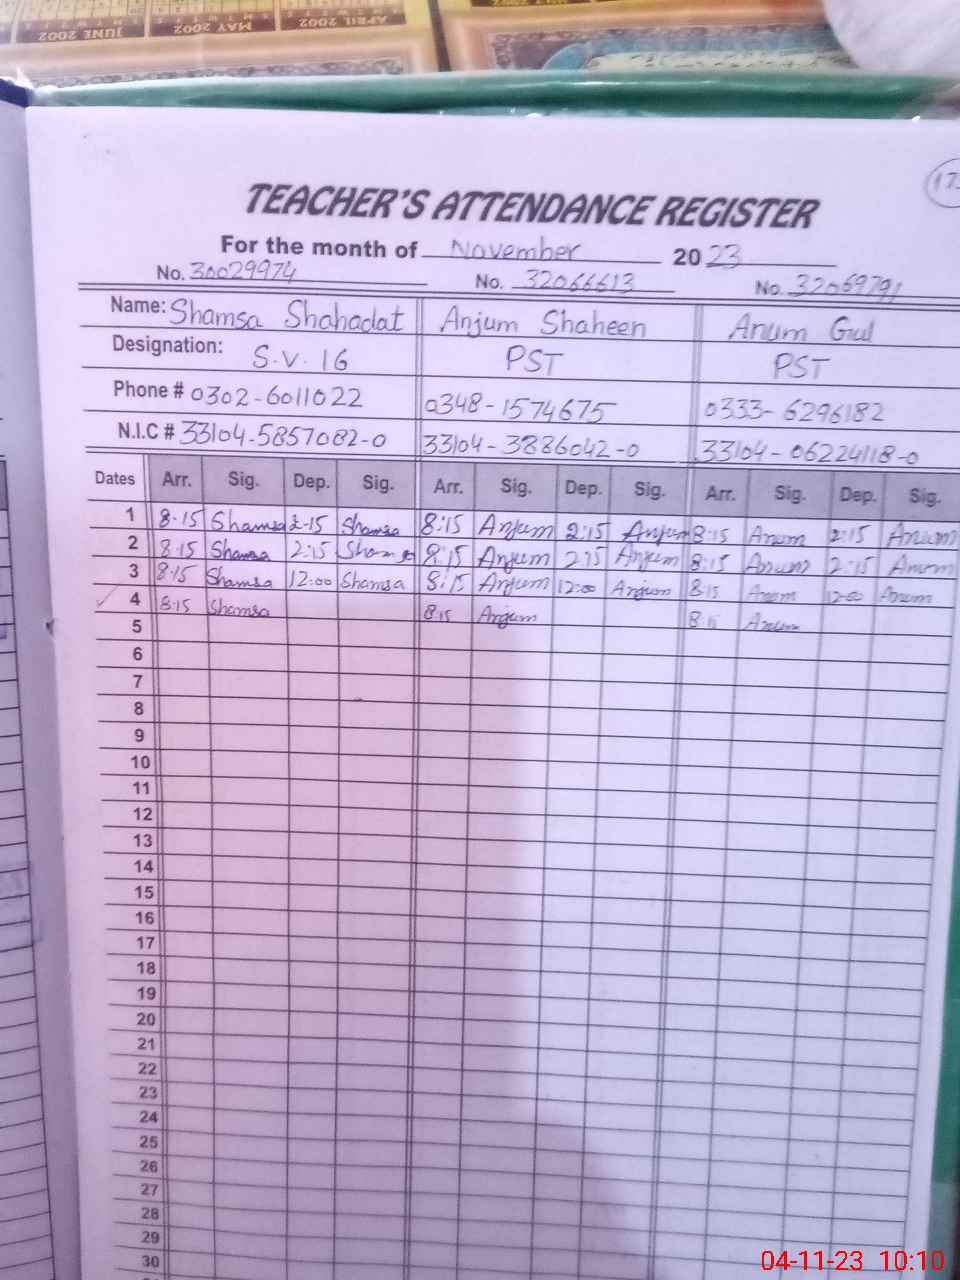 JUNE 2002 MAY 2002 APRIL 2002
TEACHER'S ATTENDANCE REGISTER
For the month of November 2023
No. 30029974 No. 32066613 No. 32069791
Name: Shamsa Shahadat Anjum Shaheen Anum Gul
Designation: S.V. 16 PST PST
Phone # 0302-6011022 0348-1574675 0333-6296182
N.I.C # 33104-5857082-0 33104-3886042-0 33104-06224118-0
Dates Arr. Sig. Dep. Sig. Arr. Sig. Dep. Sig. Arr. Sig. Dep. Sig.
1 8-15 Shamsa 2-15 Shamsa 8:15 Anjum 2:15 Anjum 8:15 Anum 2:15 Anum
2 8-15 Shamsa 2:15 Shamsa 8:15 Anjum 2:15 Anjum 8:15 Anum 2:15 Anum
3 8-15 Shamsa 12:00 Shamsa 8:15 Anjum 12:00 Anjum 8:15 Anum 12:00 Anum
4 8:15 Shamsa 8:15 Anjum 8:15 Anum
5
6
7
8
9
10
11
12
13
14
15
16
17
18
19
20
21
22
23
24
25
26
27
28
29
30
04-11-23 10:10